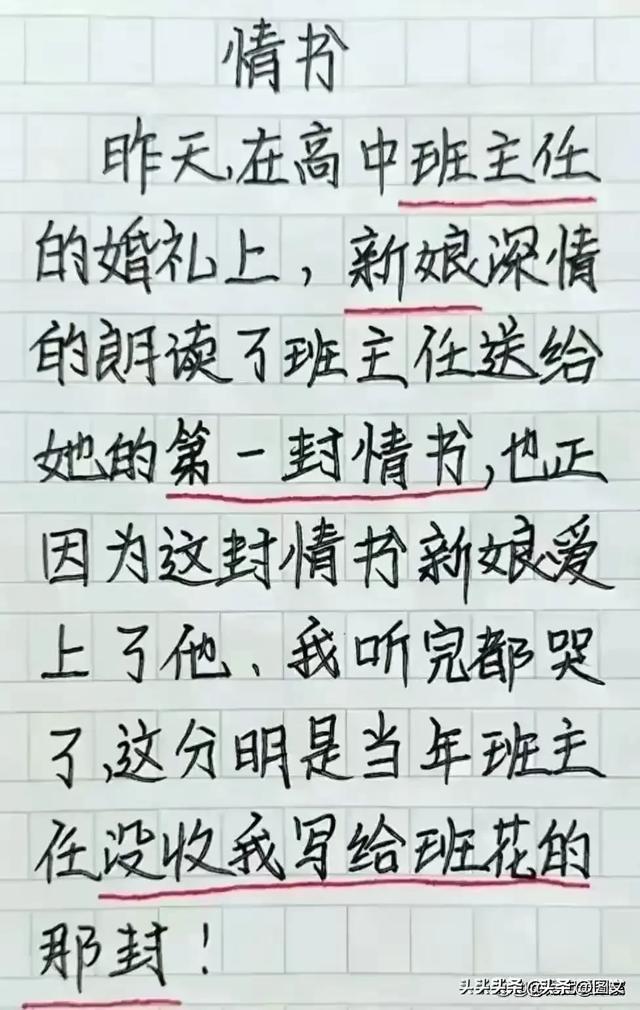 情书
昨天,在高中班主任
的婚礼上，新娘深情
的朗读了班主任送给
她的第一封情书,也正
因为这封情书新娘爱
上了他、我听完都哭
了,这分明是当年班主
任没收我写给班花的
那封！
头条@图文